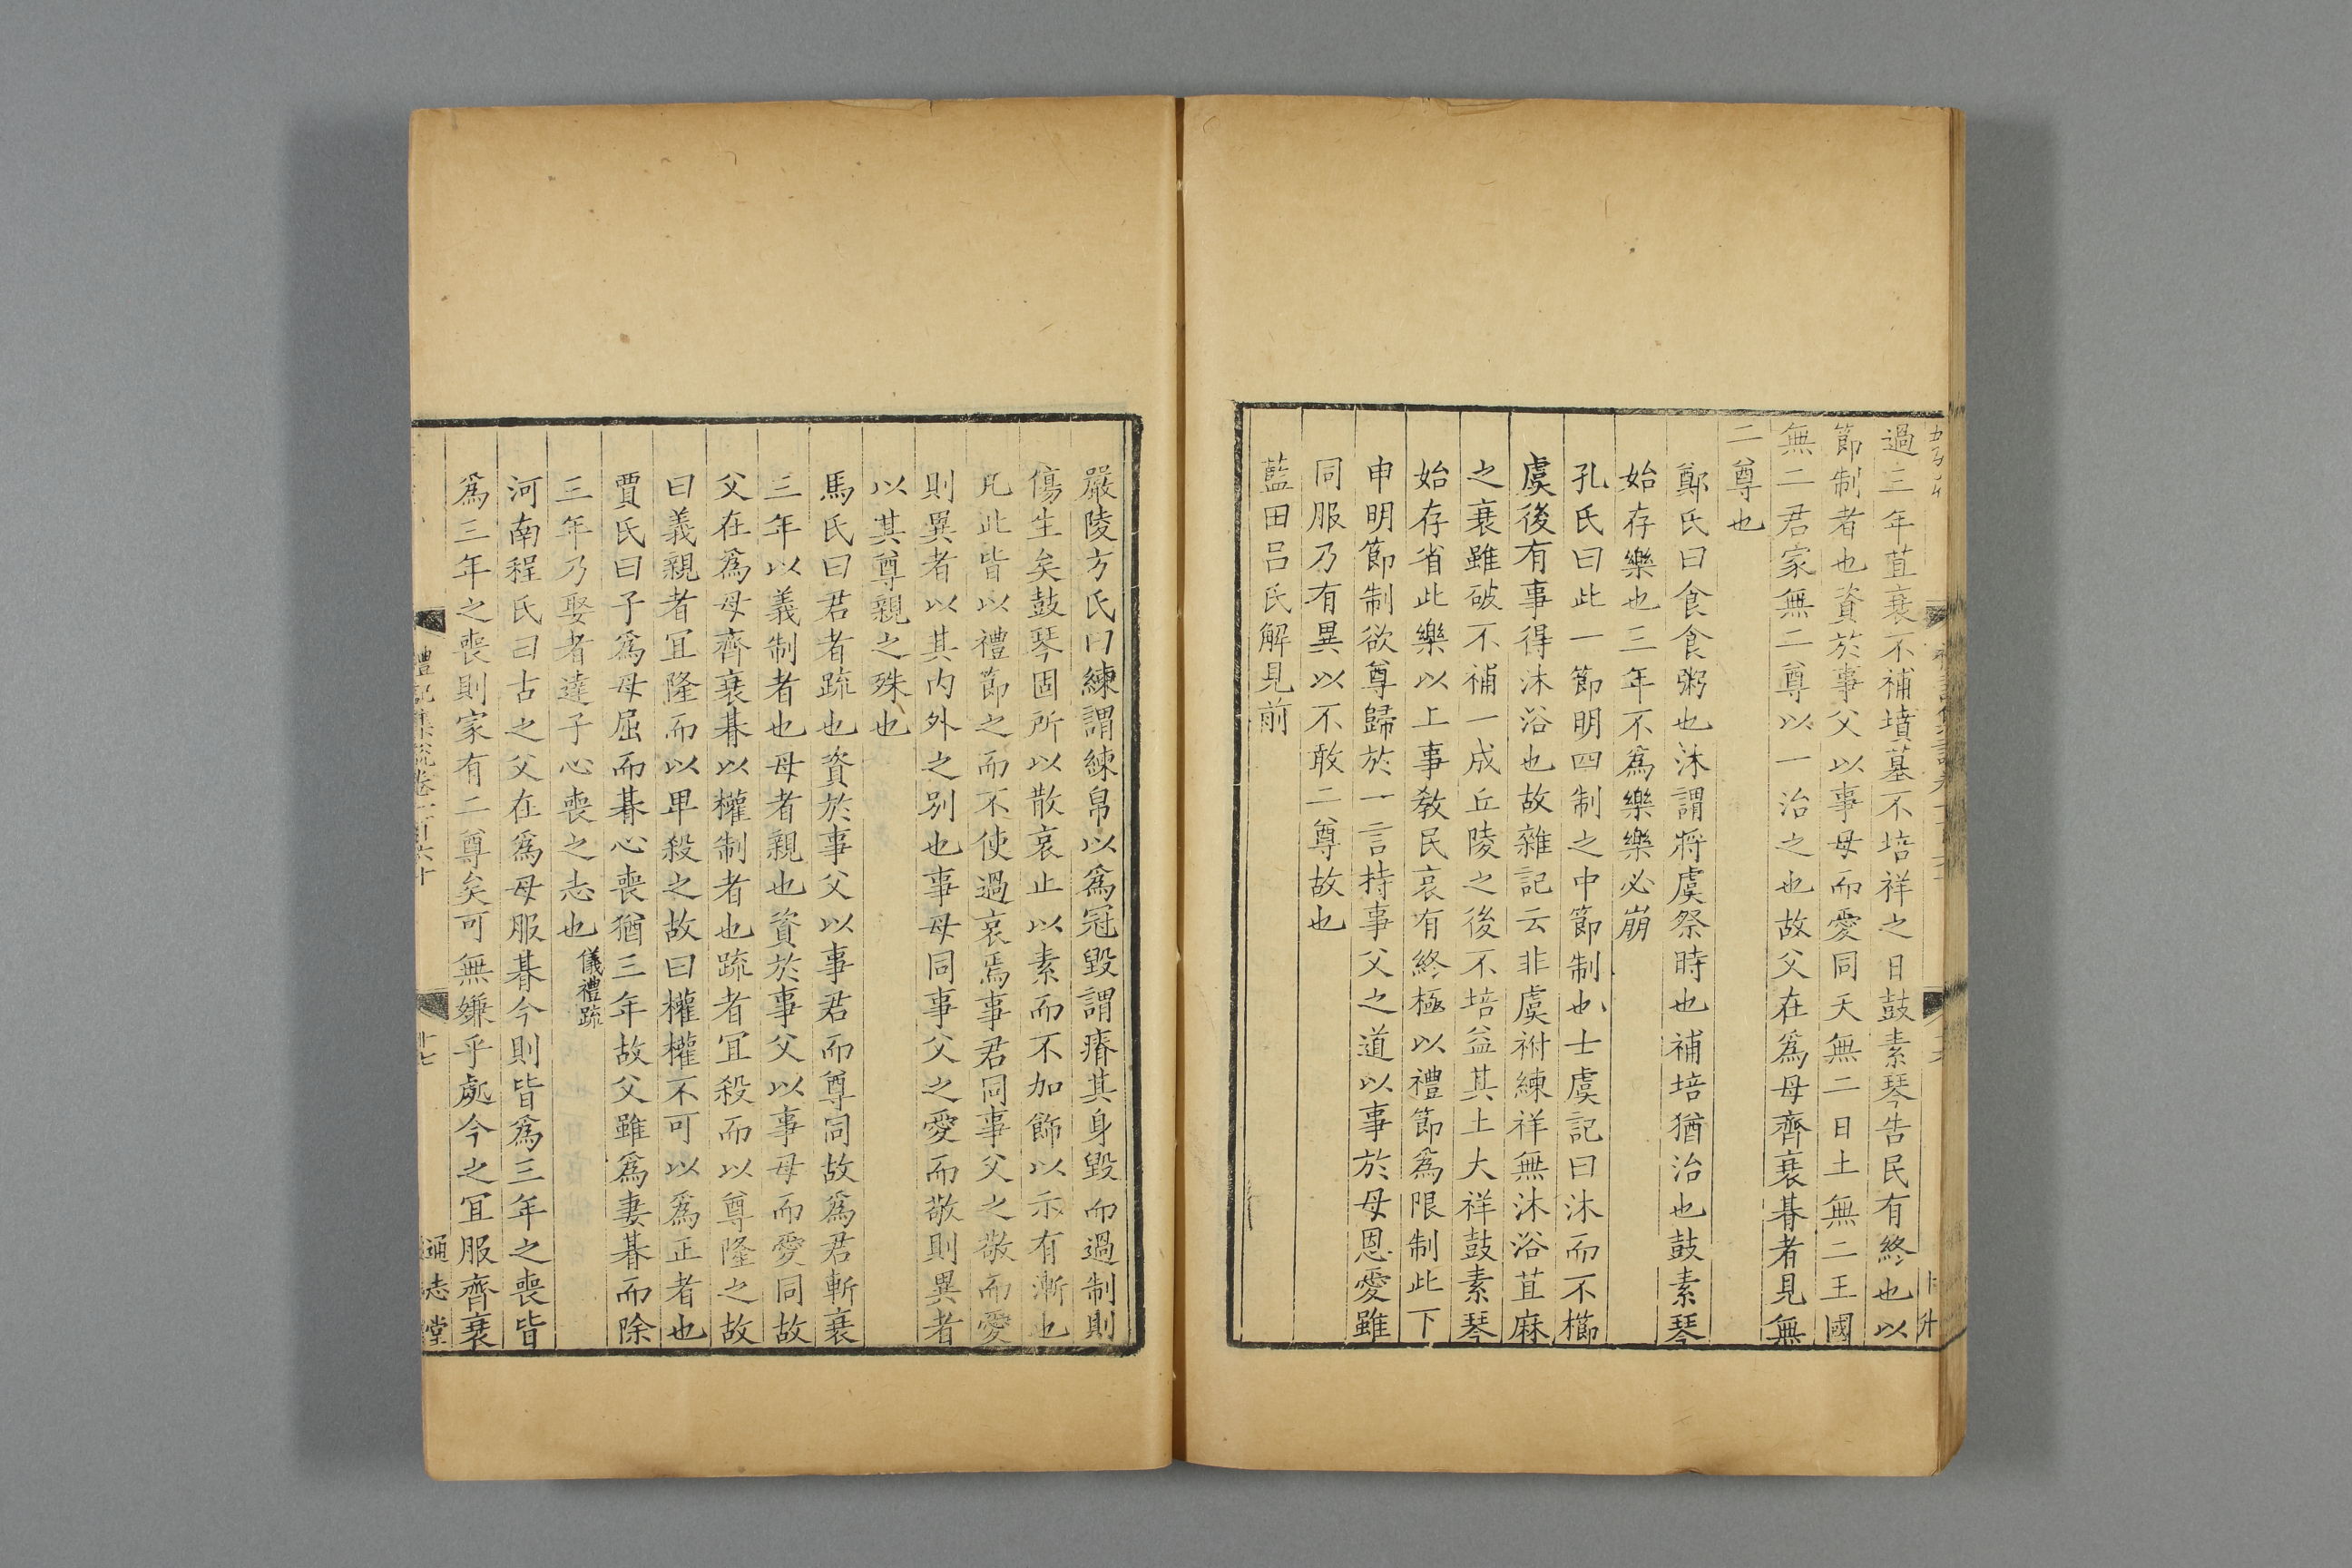 過三年苴衰不補墳墓不培祥之日鼓素琴告民有終也以
節制者也資於事父以事母而愛同天無二日土無二王國
無二君家無二尊以一治之也故父在爲母齊衰朞者見無
二尊也
鄭氏曰食食粥也沐謂將虞祭時也補培猶治也鼓素琴
始存樂也三年不爲樂樂必崩
孔氏曰此一節明四制之中節制也士虞記曰沐而不櫛
虞後有事得沐浴也故雜記云非虞祔練祥無沐浴苴麻
之衰雖破不補一成丘陵之後不培益其上大祥鼓素琴
始存省此樂以上事教民哀有終極以禮節爲限制此下
申明節制欲尊歸於一言持事父之道以事於母恩愛雖
同服乃有異以不敢二尊故也
藍田呂氏解見前
嚴陵方氏曰練謂練帛以爲冠毀謂瘠其身毀而過制則
傷生矣鼓琴固所以散哀止以素而不加飾以示有漸也
凡此皆以禮節之而不使過哀焉事君同事父之敬而愛
則異者以其內外之別也事母同事父之愛而敬則異者
以其尊親之殊也
馬氏曰君者疏也資於事父以事君而尊同故爲君斬衰
三年以義制者也母者親也資於事父以事母而愛同故
父在爲母齊衰朞以權制者也疏者宜殺而以尊隆之故
曰義親者宜隆而以卑殺之故曰權權不可以爲正者也
賈氏曰子爲母屈而朞心喪猶三年故父雖爲妻朞而除
三年乃娶者達子心喪之志也儀禮疏
河南程氏曰古之父在爲母服朞今則皆爲三年之喪皆
爲三年之喪則家有二尊矣可無嫌乎處今之宜服齊衰
禮記集說卷一百六十
十七
通志堂